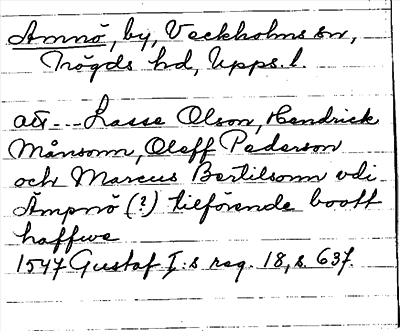 Ämnö, by, Veckholms sn,
Trögds hd, Upps. l.
att --- Lasse Olson, Hendrick
Månsonn, Oleff Pederson
och Marcus Bertilsonn vdi
Ämpnö (?) tilförende boott
haffwe
1547 Gustaf I:s reg. 18, s. 637.